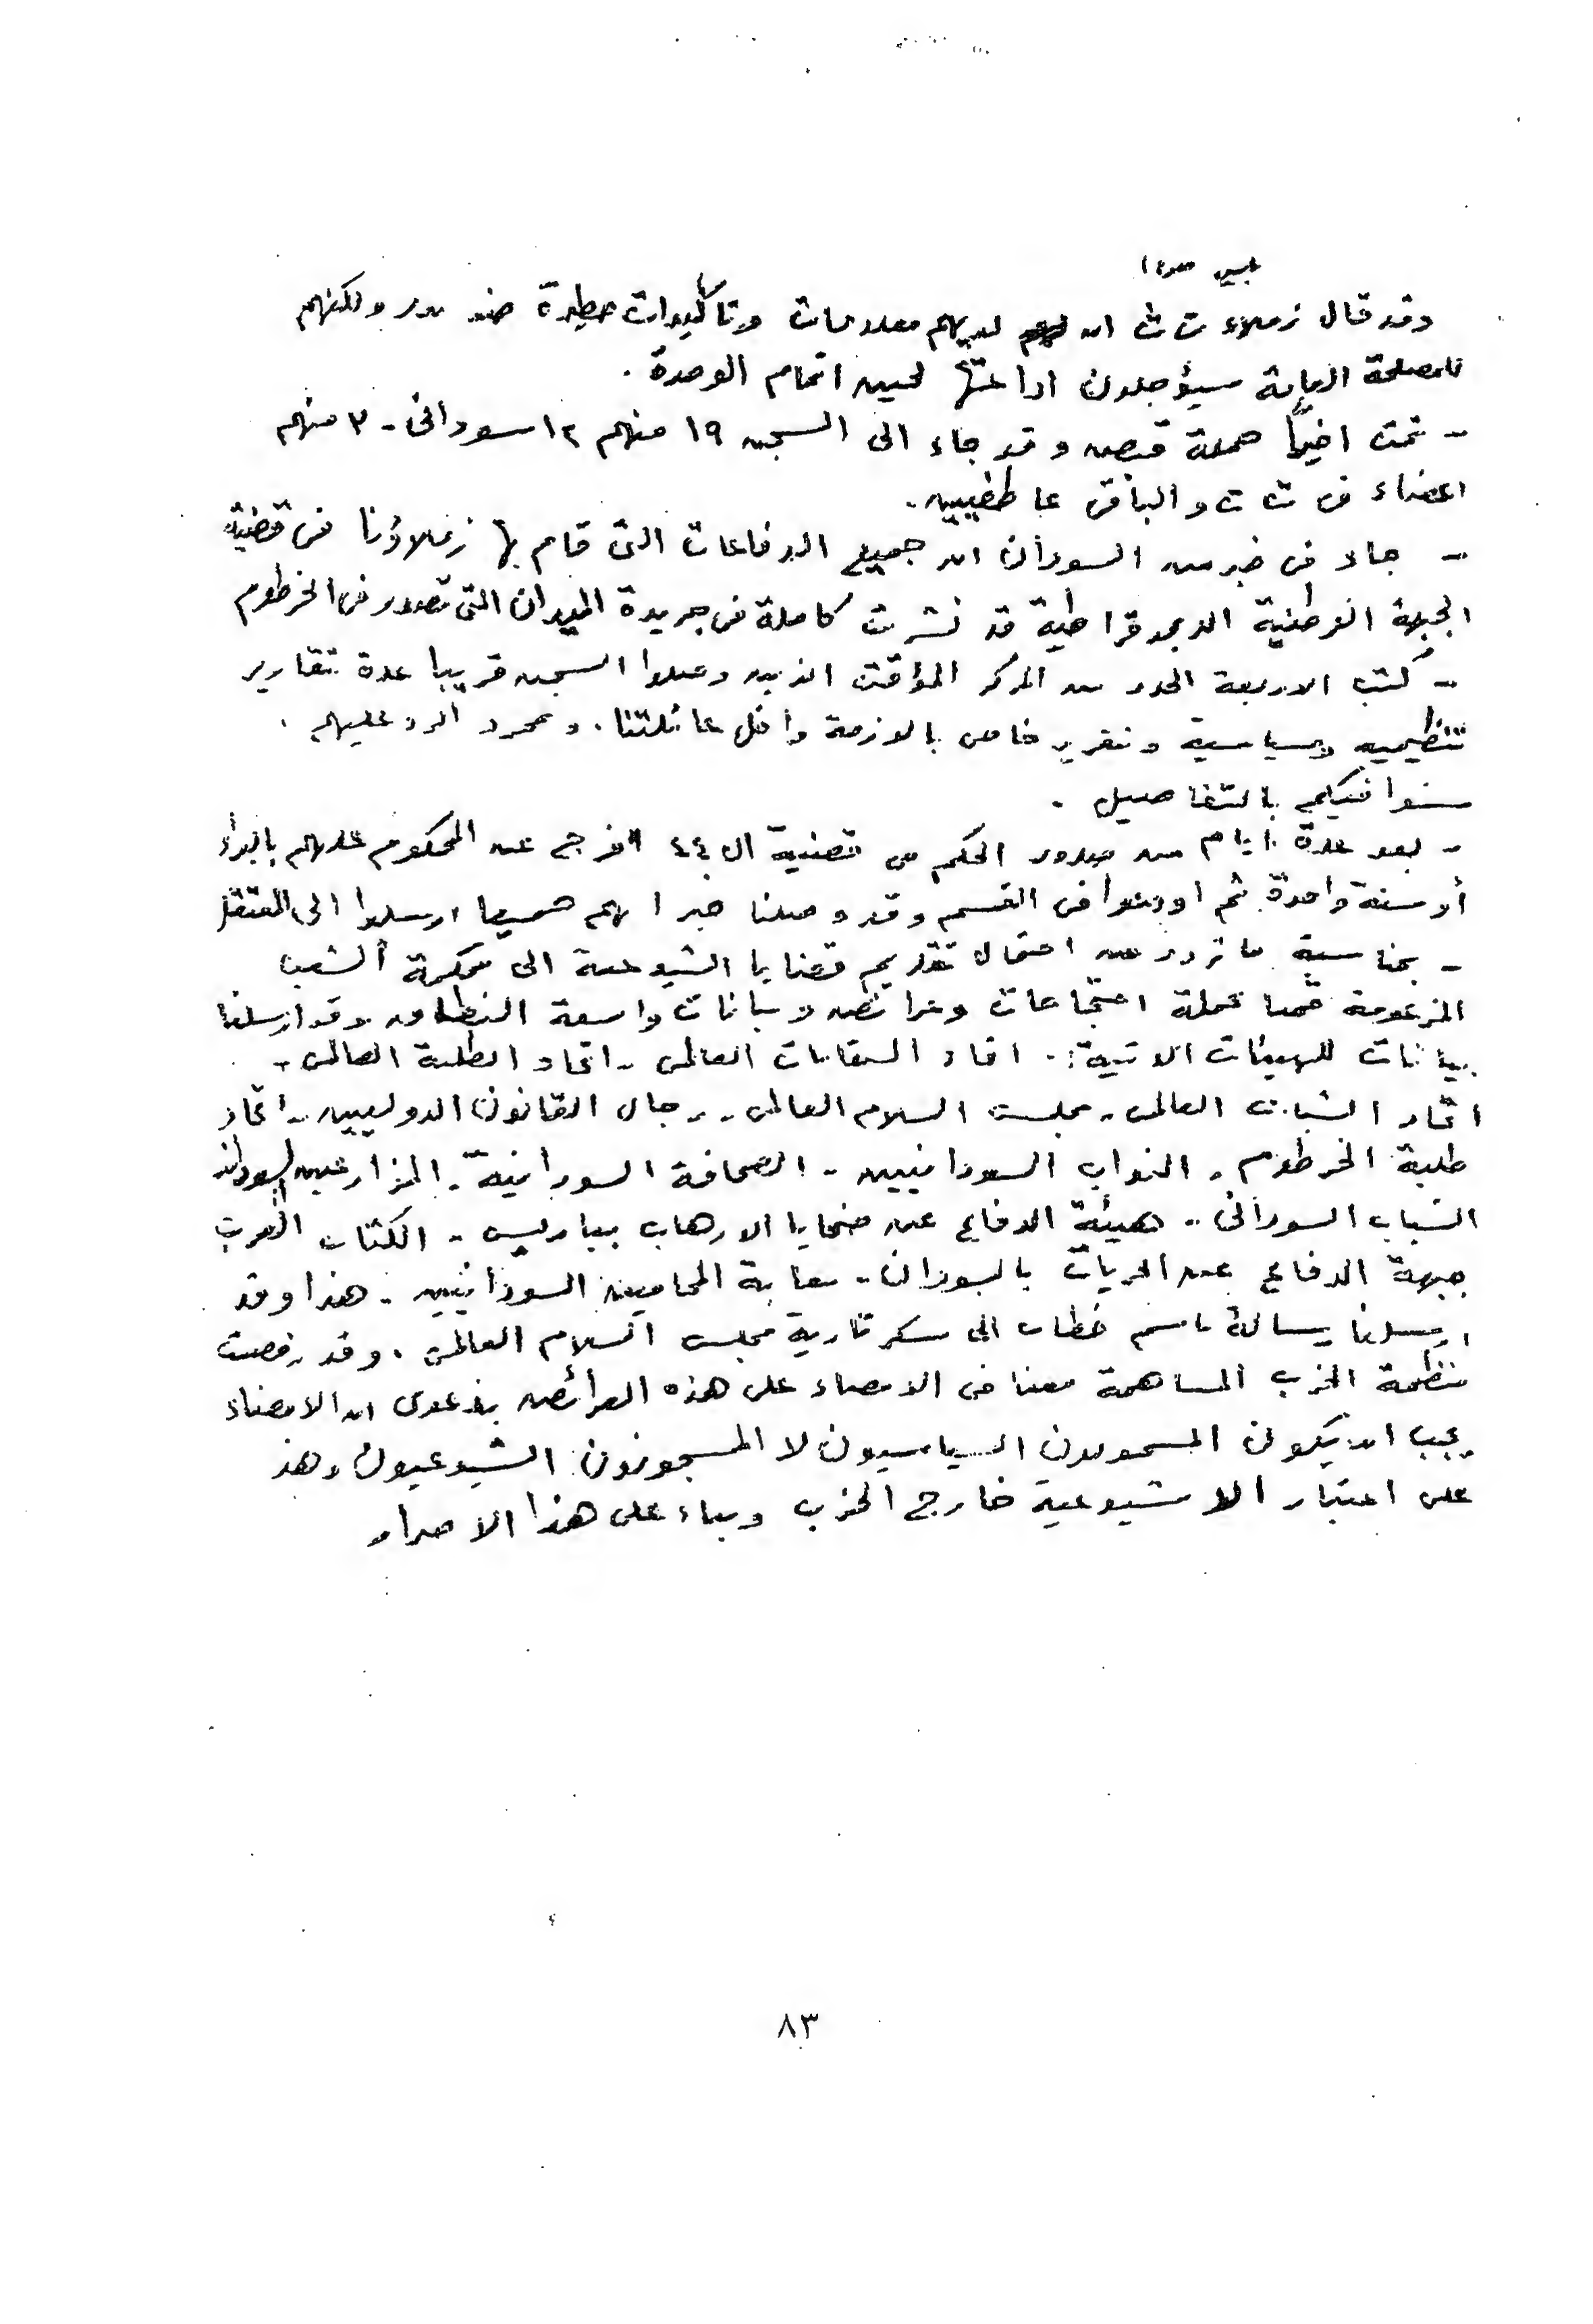 وقد قال زملاء ت ث ان لديهم معلومات وتأكيدات خطيرة ضد بدر ولكنهم
للمصلحة العامة سيؤجلون اذاعتها لحين اتمام الوحدة .
- تمت اخيرا حملة قبض وقد جاء الى السجن ١٩ منهم ١٢ سودانى - ٣ منهم
اعضاء فى ت ث والباقى عاطفيين .
- جاء فى خبر من السودان ان جميع الدفاعات التى قام بها زملاؤنا فى قضية
الجبهة الوطنية الديمقراطية قد نشرت كاملة فى جريدة الميدان التى تصدر فى الخرطوم
- كتب الاربعة الجدد من المركز المؤقت الذين دخلوا السجن قريبا عدة تقارير
تنظيمية وسياسية وتقرير خاص بالازمة داخل عائلتنا . الرد عليهم .
سنوافيكم بالتفاصيل .
- بعد عدة ايام من صدور الحكم فى قضية ال ٤٤ افرج عن المحكوم عليهم بالبراءة
أو سنة واحدة ثم اودعوا فى القسم وقد وصلنا خبر انهم جميعا ارسلوا الى المعتقل
- بمناسبة ما تردد عن احتمال تقديم قضايا الشيوعية الى محكمة الشعب
المزعومة قمنا بحملة احتجاجات وعرائض وبيانات واسعة النطاق وقد ارسلنا
بيانات للهيئات الاتية :- اتحاد النقابات العالمى - اتحاد الطلبة العالمى -
اتحاد الشباب العالمى - مجلس السلام العالمى - رجال القانون الدوليين - اتحاد
طلبة الخرطوم - النواب السودانيين - الصحافة السودانية - المزارعين السودان
الشباب السودانى - هيئة الدفاع عن ضحايا الارهاب بباريس - الكتاب العرب
جبهة الدفاع عن الحريات بالسودان - نقابة المحامين السودانيين - هذا وقد
ارسلنا رسالة باسم خطاب الى سكرتارية مجلس السلام العالمى . وقد رفضت
منظمة الحزب المساهمة معنا فى الامضاء على هذه العرائض بدعوى ان الامضاء
يجب ان يكون المسجونون السياسيون لا المسجونون الشيوعيون وهذا
على اعتبار الا شيوعية خارج الحزب وبناء على هذا الاصرار
٨٣